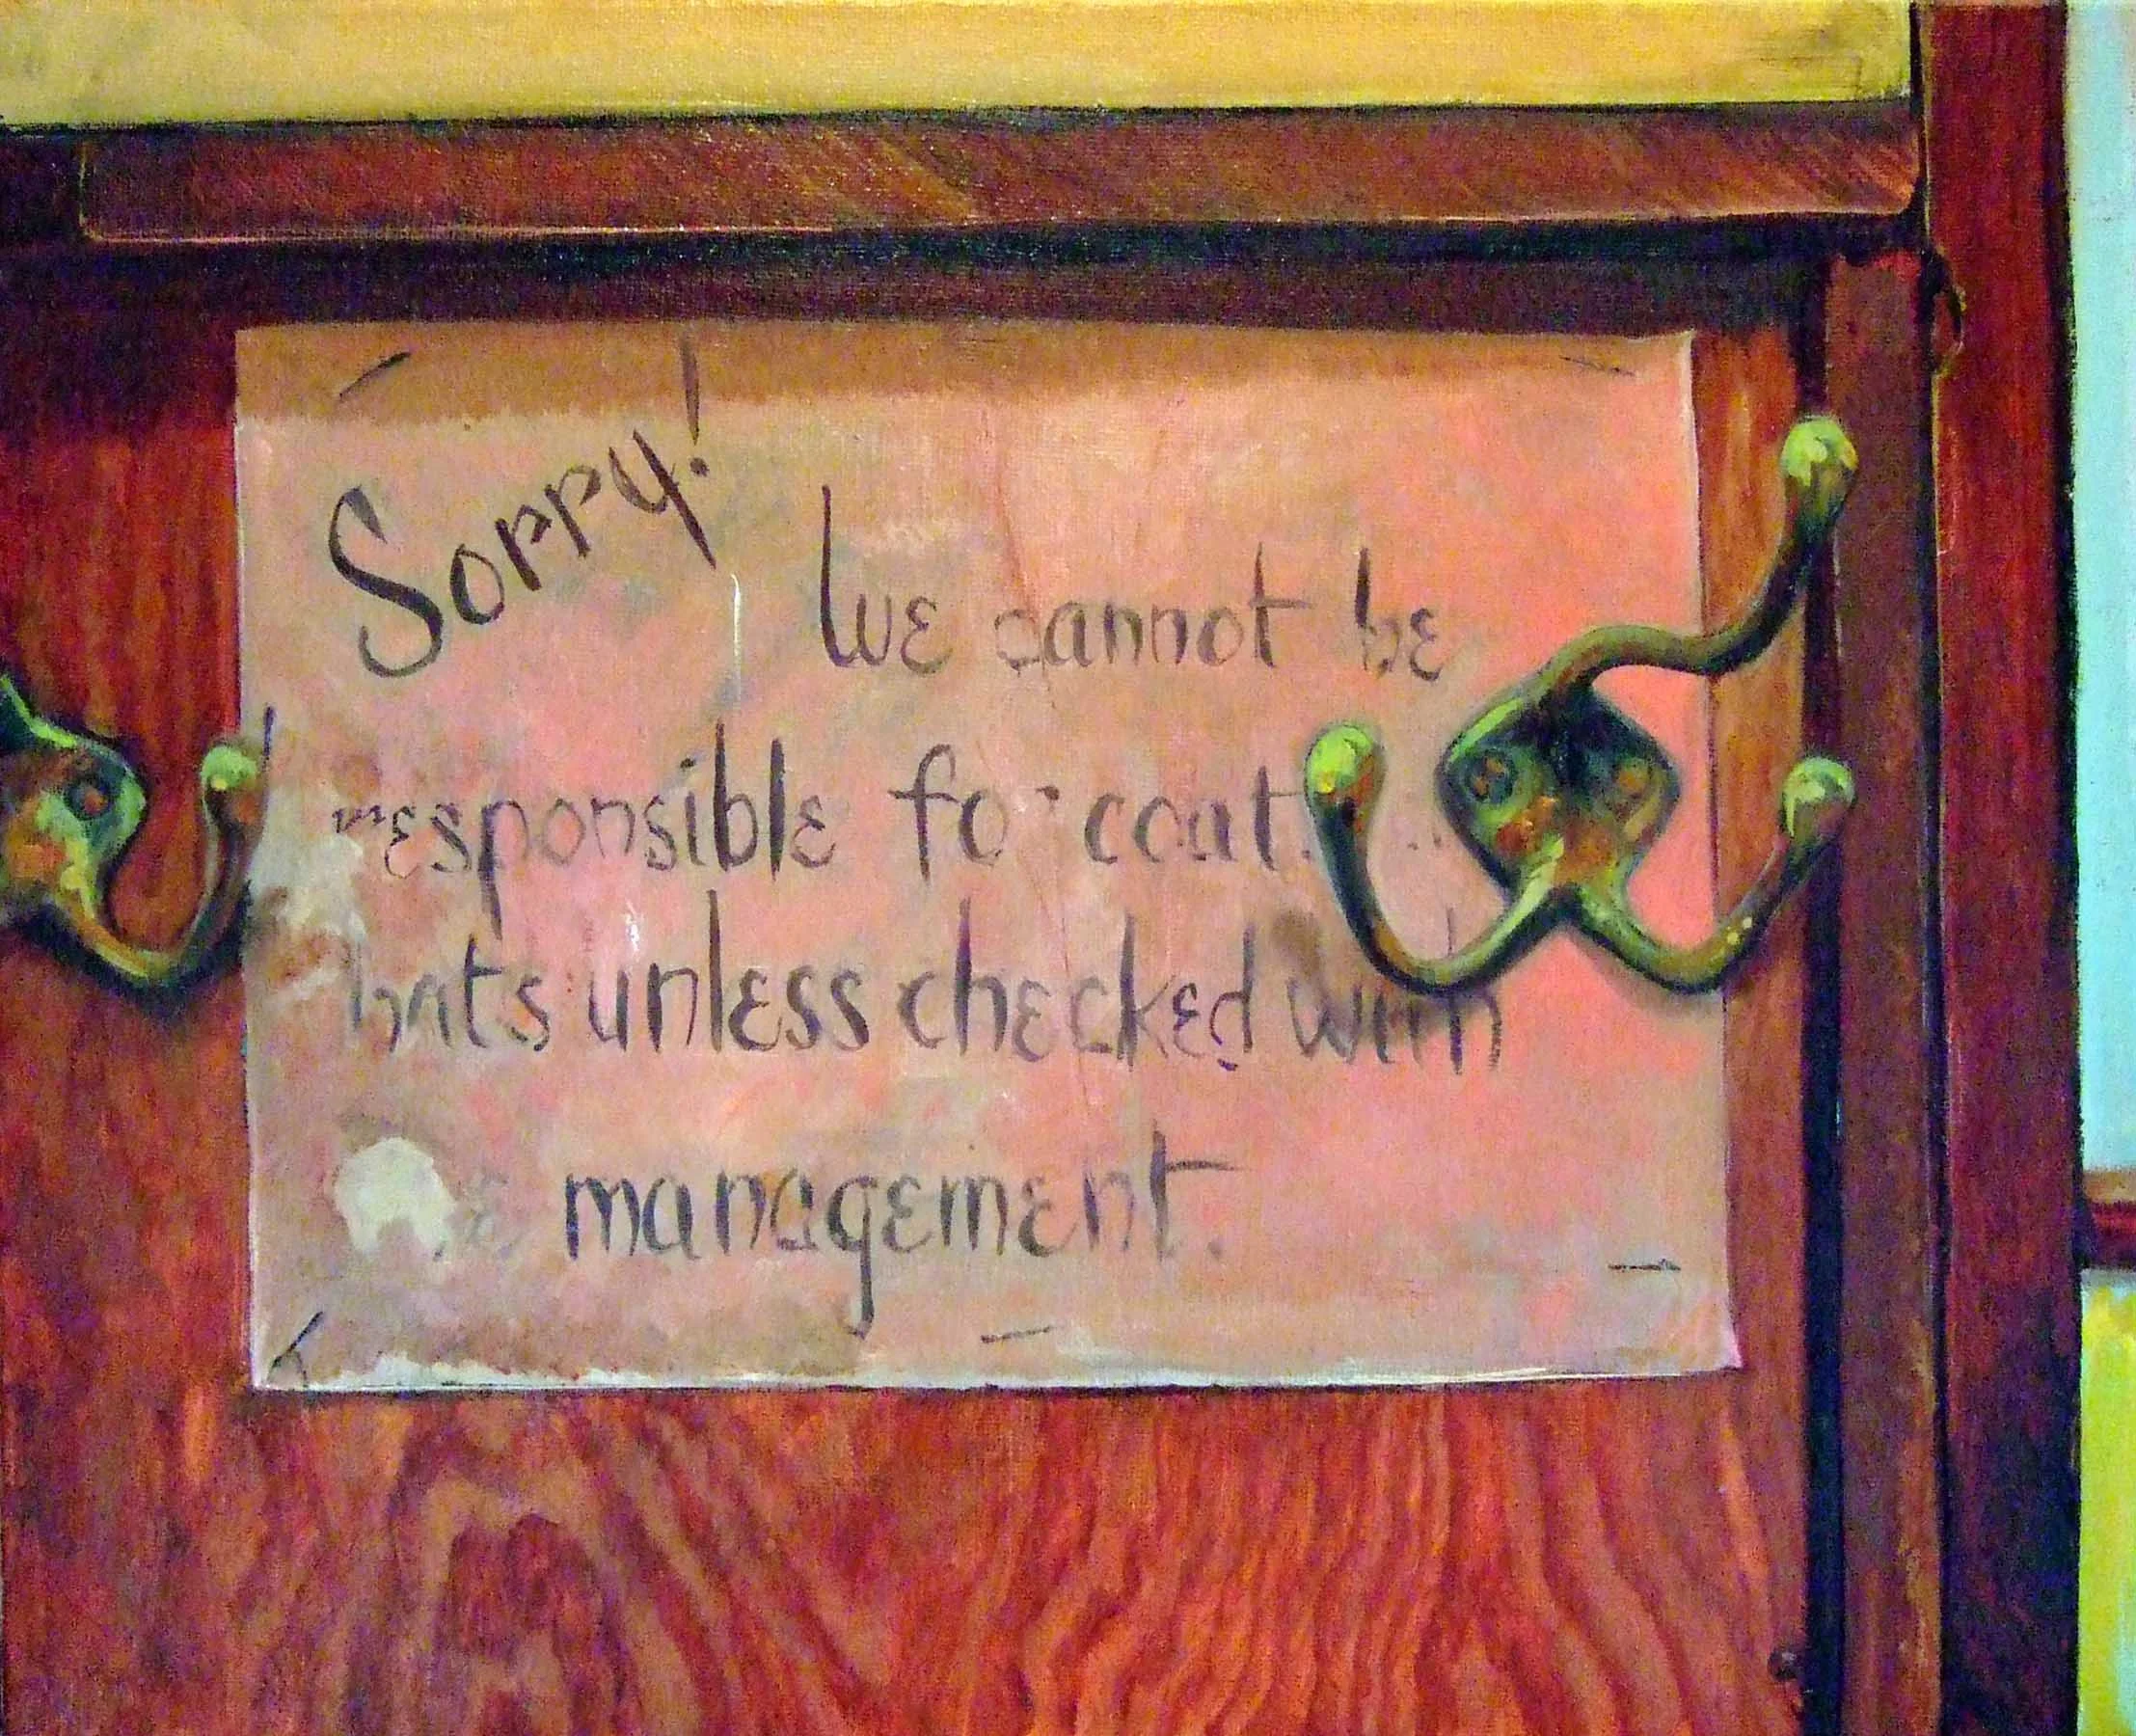 Sorry!
We cannot be
responsible for coats
hats unless checked with
management.